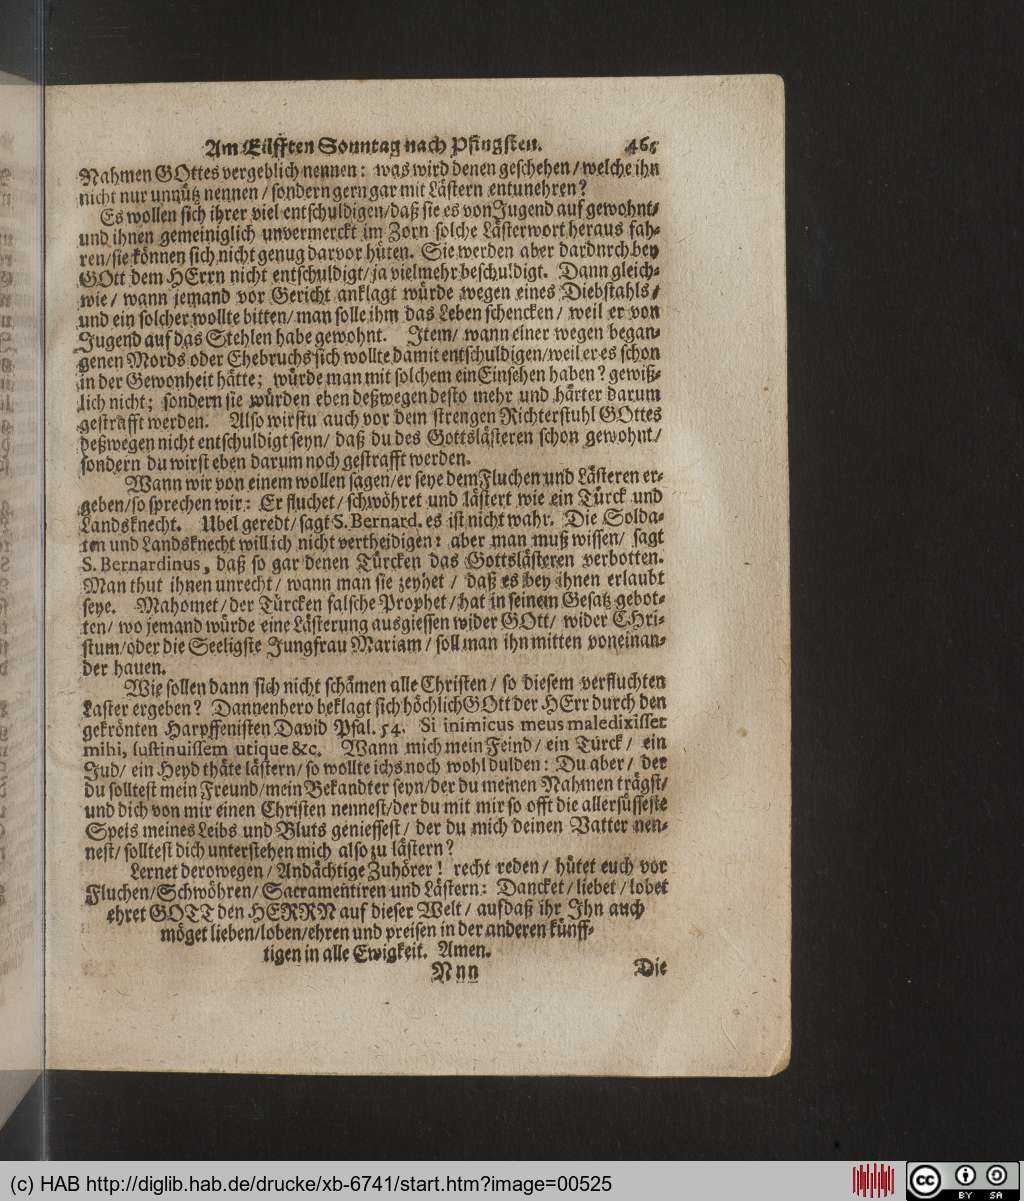 Am Eilfften Sonntag nach Pfingsten. 465
Nahmen GOttes vergeblich nennen: was wird denen geschehen/ welche ihn
nicht nur unnütz nennen/ sondern gern gar mit Lästern entunehren?
Es wollen sich ihrer viel entschuldigen/daß sie es von Jugend auf gewohnt/
und ihnen gemeiniglich unvermerckt im Zorn solche Lästerwort heraus fah-
ren/sie können sich nicht genug darvor hüten. Sie werden aber dardurch bey
GOtt dem HErrn nicht entschuldigt/ ja vielmehr beschuldigt. Dann gleich-
wie/ wann jemand vor Gericht anklagt würde wegen eines Diebstahls/
und ein solcher wollte bitten/ man solle ihm das Leben schencken/ weil er von
Jugend auf das Stehlen habe gewohnt. Item/ wann einer wegen began-
genen Mords oder Ehebruchs sich wollte damit entschuldigen/weil er es schon
in der Gewonheit hätte; würde man mit solchem ein Einsehen haben? gewiß-
lich nicht; sondern sie würden eben deßwegen desto mehr und härter darum
gestrafft werden. Also wirstu auch vor dem strengen Richterstuhl GOttes
deßwegen nicht entschuldigt seyn/ daß du des Gottslästeren schon gewohnt/
sondern du wirst eben darum noch gestrafft werden.
Wann wir von einem wollen sagen/er seye dem Fluchen und Lästeren er-
geben/so sprechen wir: Er fluchet/ schwöhret und lästert wie ein Türck und
Landsknecht. Ubel geredt/ sagt S. Bernard. es ist nicht wahr. Die Solda-
ten und Landsknecht will ich nicht vertheidigen: aber man muß wissen/ sagt
S. Bernardinus, daß so gar denen Türcken das Gottslästeren verbotten.
Man thut ihnen unrecht/ wann man sie zeyhet/ daß es bey ihnen erlaubt
seye. Mahomet/ der Türcken falsche Prophet/ hat in seinem Gesatz gebot-
ten/ wo jemand würde eine Lästerung ausgiessen wider GOtt/ wider CHri-
stum/oder die Seeligste Jungfrau Mariam/ soll man ihn mitten voneinan-
der hauen.
Wie sollen dann sich nicht schämen alle Christen/ so diesem verfluchten
Laster ergeben? Dannenhero beklagt sich höchlich GOtt der HErr durch den
gekrönten Harpffenisten David Psal. 54. Si inimicus meus maledixisset
mihi, sustinuissem utique &c. Wann mich mein Feind/ ein Türck/ ein
Jud/ ein Heyd thäte lästern/ so wollte ichs noch wohl dulden: Du aber/ der
du solltest mein Freund/mein Bekandter seyn/der du meinen Nahmen trägst/
und dich von mir einen Christen nennest/der du mit mir so offt die allersüsseste
Speis meines Leibs und Bluts geniessest/ der du mich deinen Vatter nen-
nest/ solltest dich unterstehen mich also zu lästern?
Lernet derowegen/ Andächtige Zuhörer! recht reden/ hütet euch vor
Fluchen/Schwöhren/ Sacramentiren und Lästern: Dancket/ liebet/ lobet
ehret GOTT den HERRN auf dieser Welt/ aufdaß ihr Ihn auch
möget lieben/loben/ehren und preisen in der anderen künff-
tigen in alle Ewigkeit. Amen.
Nnn Die
(c) HAB http://diglib.hab.de/drucke/xb-6741/start.htm?image=00525
cc BY SA